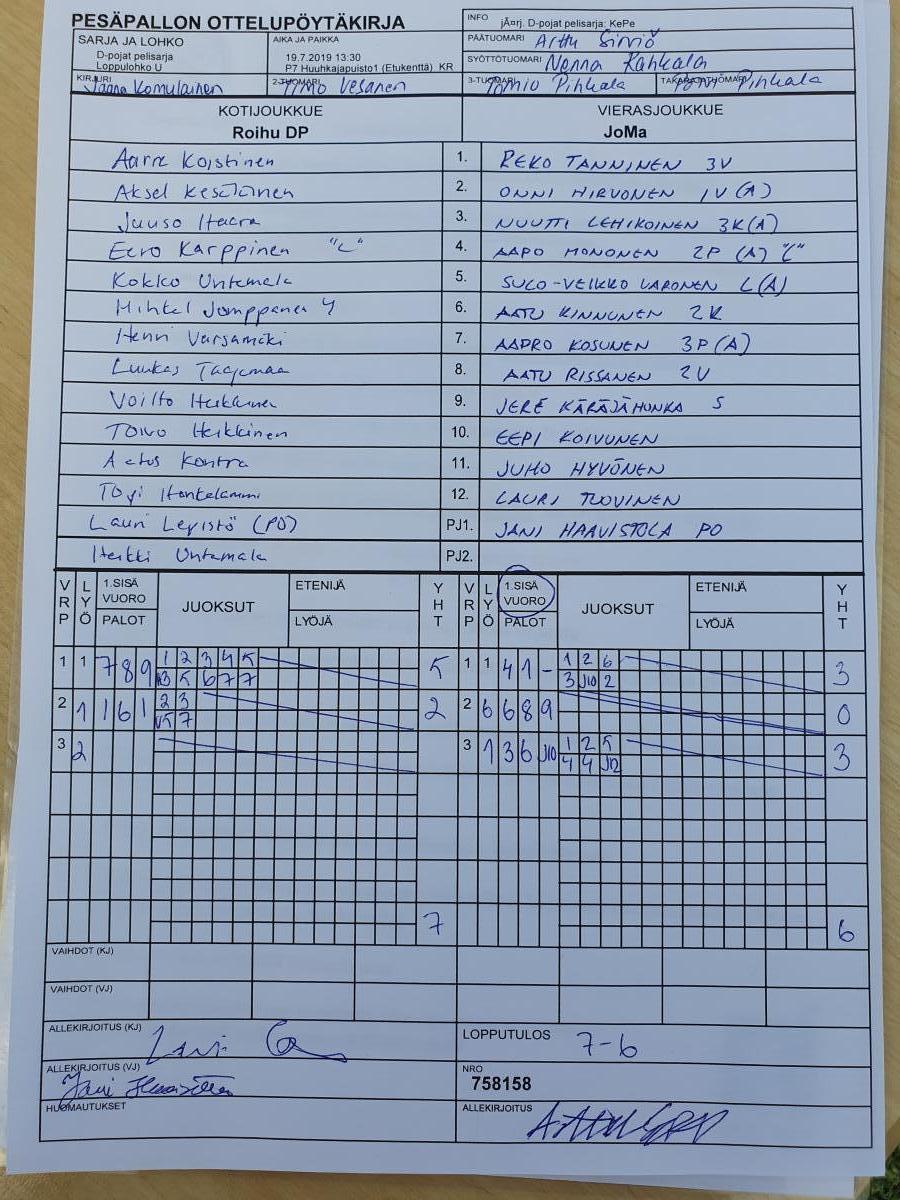 PESÄPALLON OTTELUPÖYTÄKIRJA
INFO jÃ¤rj. D-pojat pelisarja: KePe
SARJA JA LOHKO
D-pojat pelisarja
Loppulohko U
AIKA JA PAIKKA
19.7.2019 13:30
P7 Huuhkajapuisto1 (Etukenttä) KR
PÄÄTUOMARI Arttu Sirviö
SYÖTTÖTUOMARI Nenna Kahkala
KIRJURI Jaana Komulainen
2-TUOMARI Timo Vesanen
3-TUOMARI Tomio Pihkala
TAKARAJATUOMARI Pihkala
KOTIJOUKKUE
Roihu DP
VIERASJOUKKUE
JoMa
Aarre Koistinen 1. REKO TANNINEN 3V
Aksel Keskiainen 2. ONNI HIRVONEN 1V (A)
Juuso Itaera 3. NUUTTI LEHIKOINEN 3K(A)
Eero Karppinen "C" 4. AAPO MONONEN 2P (A) "C"
Kokko Untamala 5. SULO-VEIKKO VARONEN L(A)
Mihkel Jomppanen 4 6. AATU KINNUNEN 2K
Henri Varsamäki 7. AAPRO KOSUNEN 3P(A)
Luukas 8. AATU RISSANEN 2V
Voitto Heikkinen 9. JERE KÄRÄJÄHONKA S
Toivo Heikkinen 10. EEPI KOIVUNEN
Aatos Kontra 11. JUHO HYVÖNEN
Topi Honkalammi 12. LAURI TUOVINEN
Lauri Lepistö (PO) PJ1. JANI HAAVISTOLA PO
Heikki Untamala PJ2.
VRP LYÖ 1.SISÄ VUORO PALOT JUOKSUT ETENIJÄ LYÖJÄ YHT VRP LYÖ 1.SISÄ VUORO PALOT JUOKSUT ETENIJÄ LYÖJÄ YHT
1 1 7 8 9 1 2 3 4 5 5 1 1 4 1 - 1 2 6 3
3 5 6 7 7 3 J10 2
2 1 1 6 1 2 3 2 2 6 6 8 9 0
5 7
3 2 3 1 3 6 J10 1 2 5 3
4 4 J12
7 6
VAIHDOT (KJ)
VAIHDOT (VJ)
ALLEKIRJOITUS (KJ)
LOPPUTULOS 7-6
ALLEKIRJOITUS (VJ) Jani Haavistola
NRO
758158
HUOMAUTUKSET
ALLEKIRJOITUS